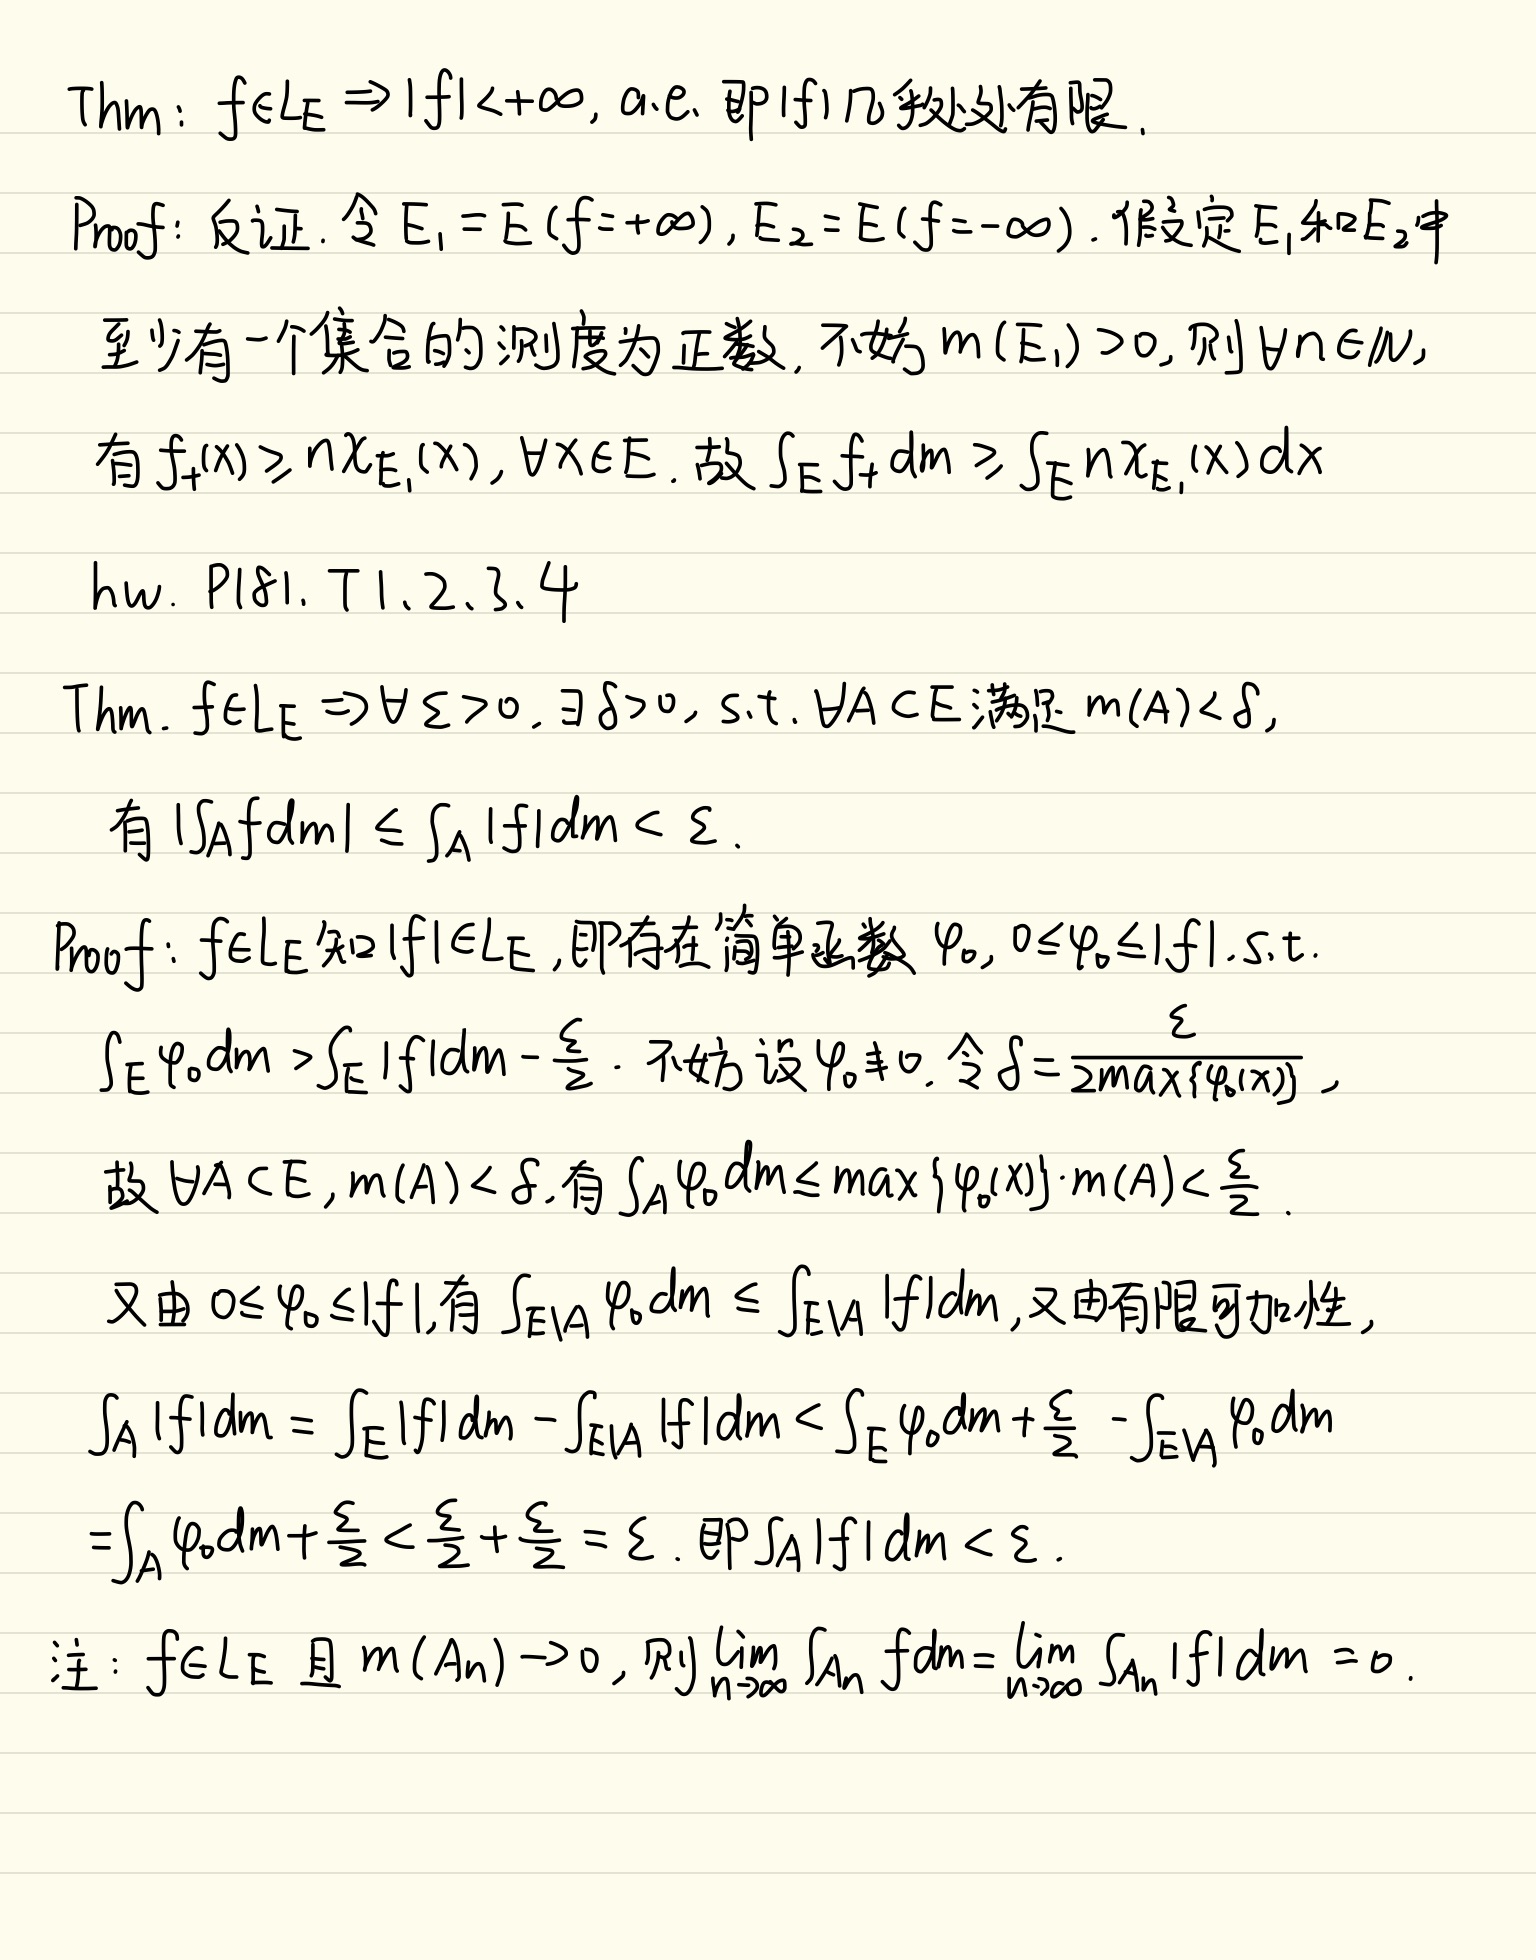 Thm: f∈L_E ⇒ |f|<+∞, a.e. 即|f|几乎处处有限.
Proof: 反证. 令 E₁ = E(f=+∞), E₂ = E(f=-∞). 假定E₁和E₂中
至少有一个集合的测度为正数. 不妨 m(E₁)>0, 则∀n∈N,
有 f₊(x) ≥ nχ_{E₁}(x), ∀x∈E. 故 ∫_E f₊dm ≥ ∫_E nχ_{E₁}(x)dx
hw. P181. T1、2、3、4
Thm. f∈L_E ⇒ ∀ε>0, ∃δ>0, s.t. ∀A⊂E满足 m(A)<δ,
有 |∫_A fdm| ≤ ∫_A |f|dm < ε.
Proof: f∈L_E 知 |f|∈L_E, 即存在简单函数 φ₀, 0≤φ₀≤|f|. s.t.
∫_E φ₀dm > ∫_E |f|dm - ε/2. 不妨设 φ₀≢0. 令 δ = ε/(2max{φ₀(x)}),
故 ∀A⊂E, m(A)<δ. 有 ∫_A φ₀dm ≤ max{φ₀(x)}·m(A) < ε/2.
又由 0≤φ₀≤|f|, 有 ∫_{E\A} φ₀dm ≤ ∫_{E\A} |f|dm, 又由有限可加性,
∫_A |f|dm = ∫_E |f|dm - ∫_{E\A} |f|dm < ∫_E φ₀dm + ε/2 - ∫_{E\A} φ₀dm
= ∫_A φ₀dm + ε/2 < ε/2 + ε/2 = ε. 即 ∫_A |f|dm < ε.
注: f∈L_E 且 m(Aₙ)→0, 则 lim_{n→∞} ∫_{Aₙ} fdm = lim_{n→∞} ∫_{Aₙ} |f|dm = 0.